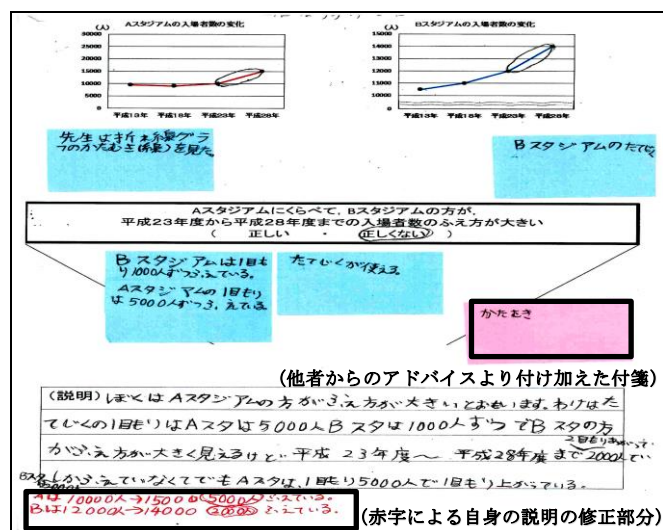 Aスタジアムの入場者数の変化
(人)
30000
25000
20000
15000
10000
5000
0
平成13年 平成18年 平成23年 平成28年
Bスタジアムの入場者数の変化
(人)
15000
14000
13000
12000
11000
10000
0
平成13年 平成18年 平成23年 平成28年
先生は折れ線グラ
フのかたむき(線)を見た
Bスタジアムのたてじく
Aスタジアムにくらべて，Bスタジアムの方が，
平成23年度から平成28年度までの入場者数のふえ方が大きい
( 正しい ・ 正しくない )
Bスタジアムは1目も
り1000人ずつふえている。
Aスタジアムの1目もり
は5000人ずつふえている
たてじくが使える。
かたむき
(他者からのアドバイスより付け加えた付箋)
(説明) ぼくはAスタジアムの方がふえ方が大きいとおもいます。わけはた
てじくの1目もりはAスタは5000人Bスタは1000人ずつでBスタの方
がふえ方が大きく見えるけど平成23年度～平成28年度まで2000人
2目もりあがって
Bスタ
しかふえていなくてでもAスタは、1目もり5000人で1目もり上がっている。
Aは10000人→15000 5000人ふえている。
Bは12000人→14000 2000人ふえている。
(赤字による自身の説明の修正部分)